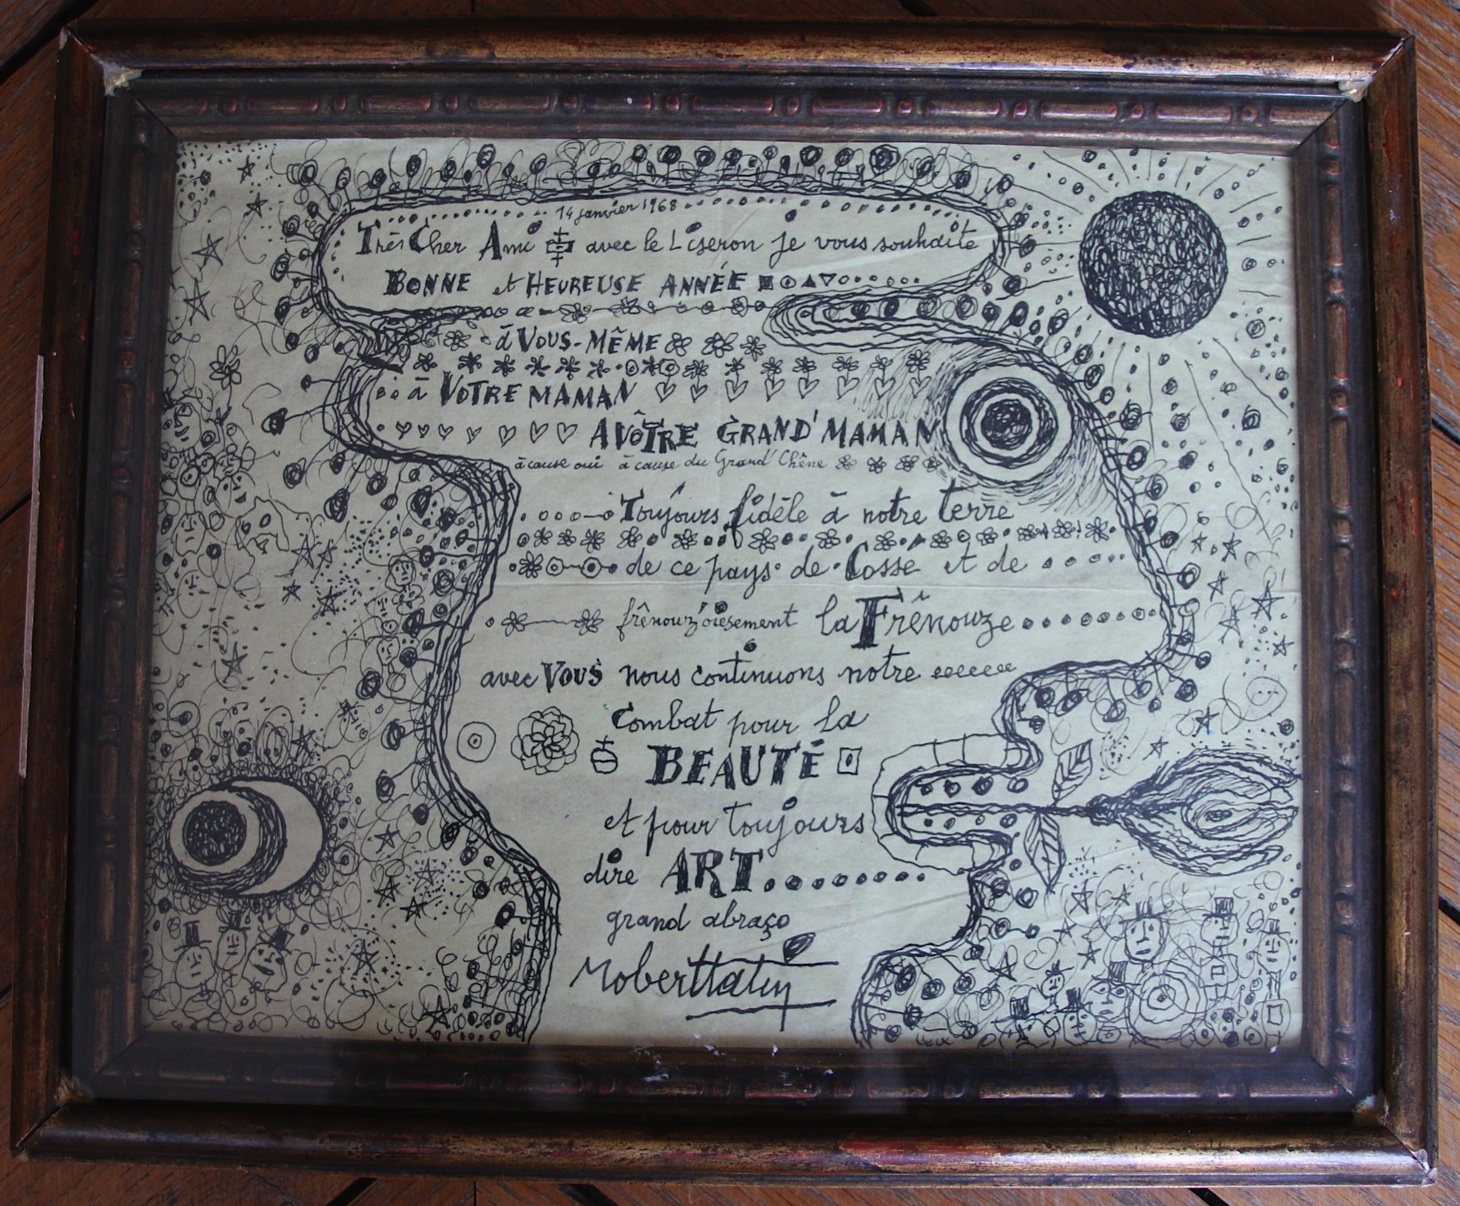 14 janvier 1968
Très Cher Ami avec le Liseron je vous souhaite
BONNE et HEUREUSE ANNÉE
à VOUS-MÊME
à VOTRE MAMAN
A VÔTRE GRAND'MAMAN
à cause oui à cause du Grand Chêne
Toujours fidèle à notre terre
de ce pays de Cossé et de
frênouzoiesement la Frênouze
avec VOUS nous continuons notre
Combat pour la
BEAUTÉ
et pour toujours
dire ART
grand abraço
Roberttatin